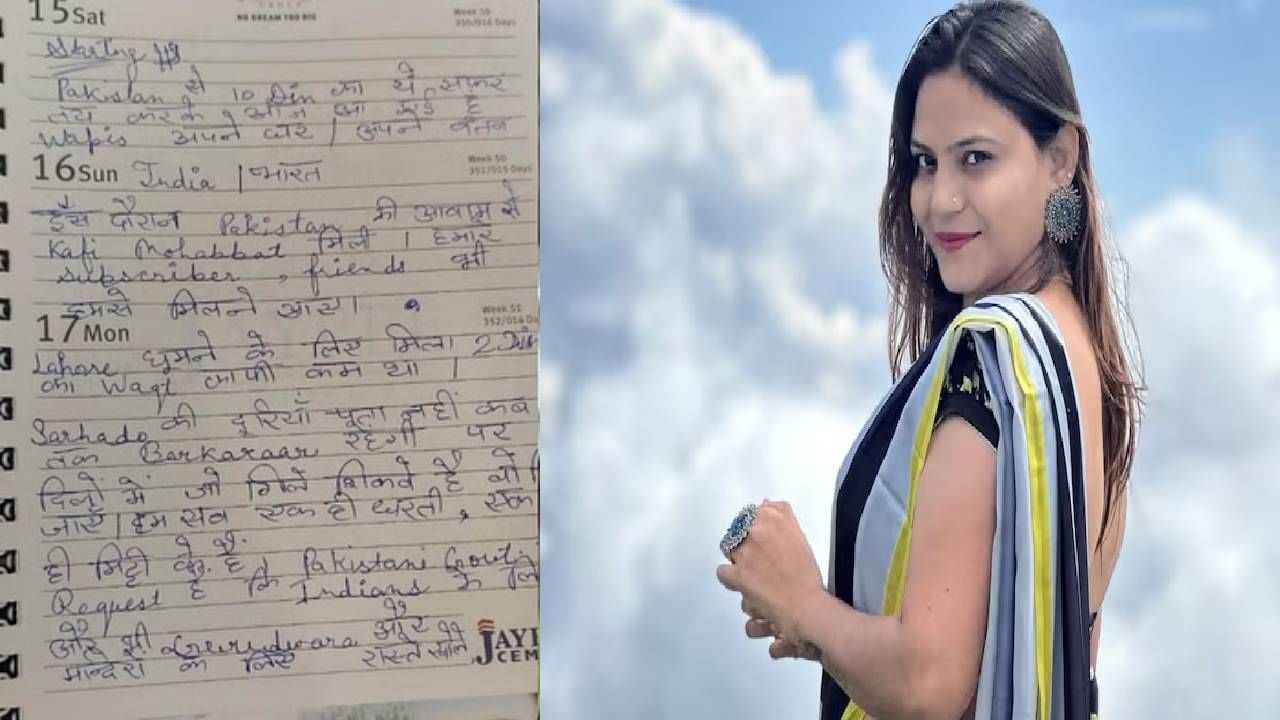 NO DREAM TOO BIG
15 Sat
Week 50
350/016 Days
Pakistan से 10 Din का ये सफर
तय करके आज आ गई है
Wapis अपने घर । अपने वतन
16 Sun India । भारत
Week 50
351/015 Days
इस दौरान Pakistan की आवाम से
Kafi Mohabbat मिली । हमारे
subscriber, friends भी
हमसे मिलने आए ।
17 Mon
Week 51
352/014 Da
Lahore घुमने के लिए मिला 2 Din
का Waqt काफी कम था ।
Sarhado की दूरियाँ पता नहीं कब
तक Barkaraar रहेगी पर
दिलों में जो गिले शिकवे है वो
जाएं । हम सब एक ही धरती, एक
ही मिट्टी के है । Pakistani Govt.
Request है कि Indians के लि
और भी Gurudwara और
मन्दिरों के लिए रास्ते खोले
JAYP
CEM